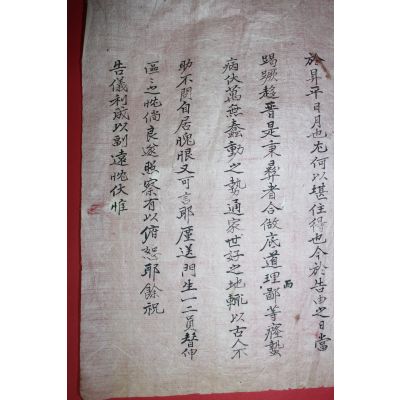 於昇平日月也尤何以堪住得也今於告由之日當
踢蹶趍晉是東彛者合做底道理而鄙等癃蟄
病伏萬無蠢動之勢通家世好之地輒以古人不
助不問自居愧眼又可言耶厪送門生一二員替伸
區之忱倘良遂照察有以俯恕耶餘祝
告儀利成以副遠忱伏惟